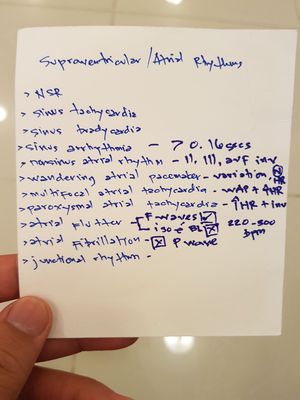 Supraventricular / Atrial Rhythms
> NSR
> sinus tachycardia
> sinus bradycardia
> sinus arrhythmia - > 0.16 secs
> nonsinus atrial rhythm - II, III, avF inv
> wandering atrial pacemaker - variation, N HR
> multifocal atrial tachycardia - WAP + ↑HR
> paroxysmal atrial tachycardia - ↑HR + inv
> atrial flutter - F-waves ✓ 220-300 bpm
isoe BL X
> atrial fibrillation - X P wave
> junctional rhythm -